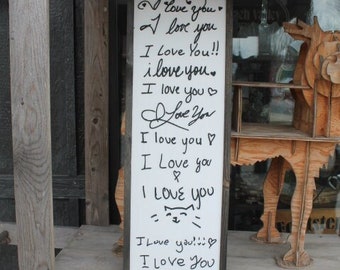 I love you
I love you
I Love You!!
i love you.
I love you ♡
I Love You
I love you ♡
I Love you
I LOVE you
I Love you!!!♡
I Love You